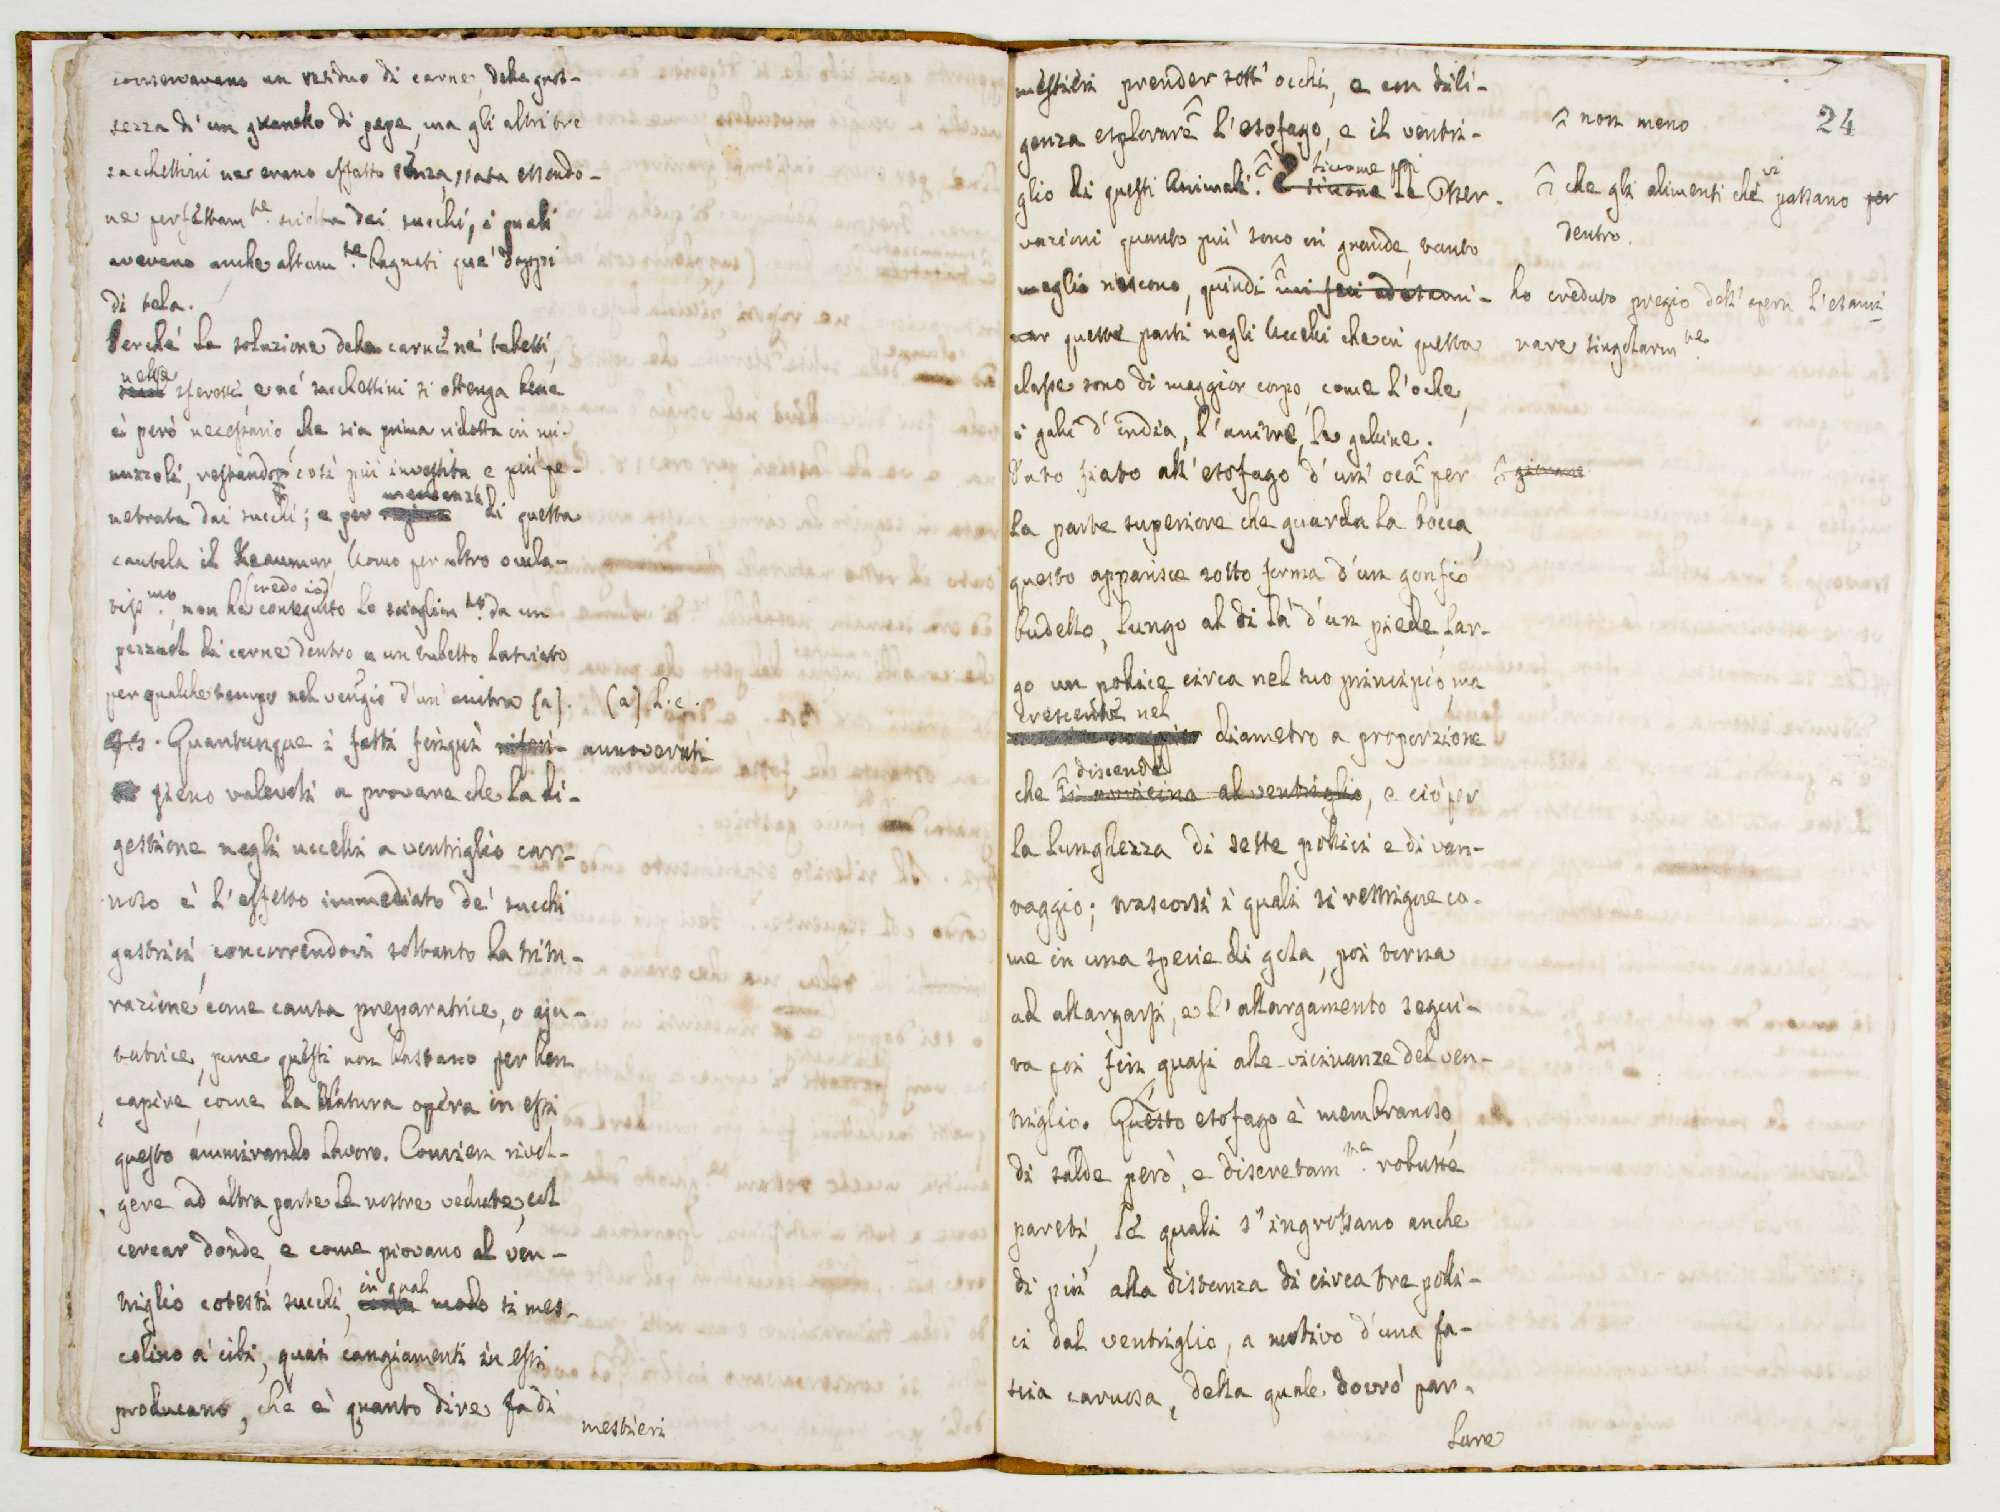 conservavano un residuo di carne, della gros-
sezza di un granello di pepe, ma gli altri tre
sacchettini ne erano affatto senza, stata essendo-
ne perfettam.te sciolta dai succhi, i quali
avevano anche altam.te bagnati que' doppj
di tela.
Perchè la soluzione della carne ne' tubetti,
nelle sferette e ne' sacchettini si ottenga bene
è però necessario che sia prima ridotta in mi-
nuzzoli, restando così più investita e più pe-
netrata dai succhi; e per mancanza di questa
cautela il Reaumur, Uomo per altro ocula-
tiss.mo, non ha (credo io) conseguito lo scioglim.to da un
pezzuol di carne dentro a un tubetto lasciato
per qualche tempo nel ventriglio d'un' anitra (a). (a) l. c.
Quantunque i fatti finquì annoverati
sieno valevoli a provare che la di-
gestione negli uccelli a ventriglio car-
noso è l'effetto immediato de' succhi
gastrici, concorrendovi soltanto la tritu-
razione come causa preparatrice, o aju-
tatrice, pure questi non bastano per ben
capire, come la Natura opera in essi
questo ammirando lavoro. Convien rivol-
gere ad altra parte le nostre vedute, col
cercar donde, e come piovano al ven-
triglio cotesti succhi, in qual modo si mes-
colino a' cibi, quai cangiamenti in essi
producano, che è quanto dire fa di
mestieri
24
mestieri prender sott' occhi, e con dili-
genza esplorare l'esofago, e il ventri- non meno
glio di questi Animali. siccome le Osser- che gli alimenti che vi passano per
vazioni quanto più sono in grande, tanto dentro.
meglio riescono, quindi mi feci ad esami- ho creduto pregio dell' opera l'esami
nar queste parti negli Uccelli che in questa nare singolarm.te
classe sono di maggior corpo, come l'oche,
i galli d'india, l'anitre, le galline.
Dato fiato all' esofago d'un' oca per giovane
la parte superiore che guarda la bocca,
questo apparisce sotto forma d'un gonfio
budello, lungo al di là d'un piede, lar-
go un pollice circa nel suo principio, ma
crescente nel diametro a proporzione
che discende si avvicina al ventriglio, e ciò per
la lunghezza di sette pollici e di van-
taggio; trascorsi i quali si restrigne co-
me in una specie di gola, poi torna
ad allargarsi, e l'allargamento segui-
ta poi fin quasi alle vicinanze del ven-
triglio. Questo esofago è membranoso,
di salde però, e discretam.te robuste
pareti, le quali s'ingrossano anche
di più alla distanza di circa tre polli-
ci dal ventriglio, a motivo d'una fa-
scia carnosa, della quale dovrò par-
lare